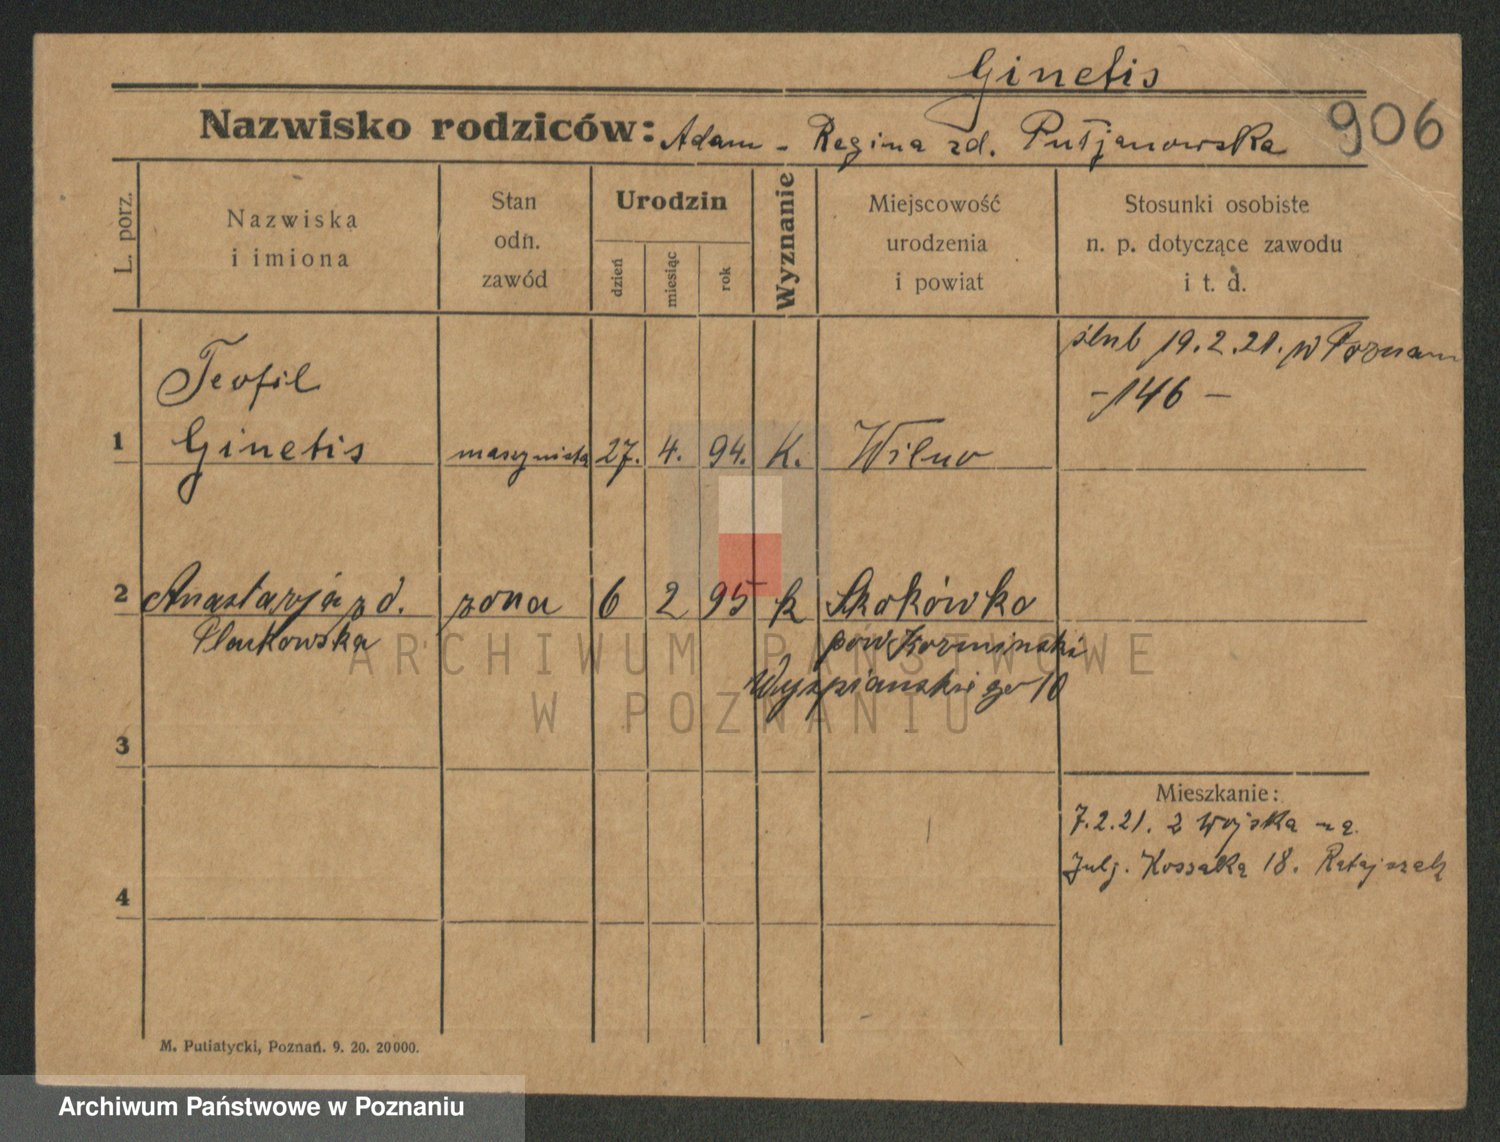 Ginetis
906
Nazwisko rodziców: Adam - Regina zd. Putjanowska
L. porz.
Nazwiska i imiona
Stan odn. zawód
Urodzin
dzień
miesiąc
rok
Wyznanie
Miejscowość urodzenia i powiat
Stosunki osobiste n. p. dotyczące zawodu i t. d.
ślub 19.2.21. w Poznaniu
- 146 -
1 Teofil
Ginetis maszynista 27. 4. 94. K. Wilno
2 Anastazja zd. żona 6 2 95 k Skokówko
pow Kozminski
Wyspianskiego 10
3
Mieszkanie:
7.2.21. z Wojska na
Julj. Kossaka 18. Ratajczak
4
M. Putiatycki, Poznań. 9. 20. 20000.
ARCHIWUM PAŃSTWOWE
W POZNANIU
Archiwum Państwowe w Poznaniu